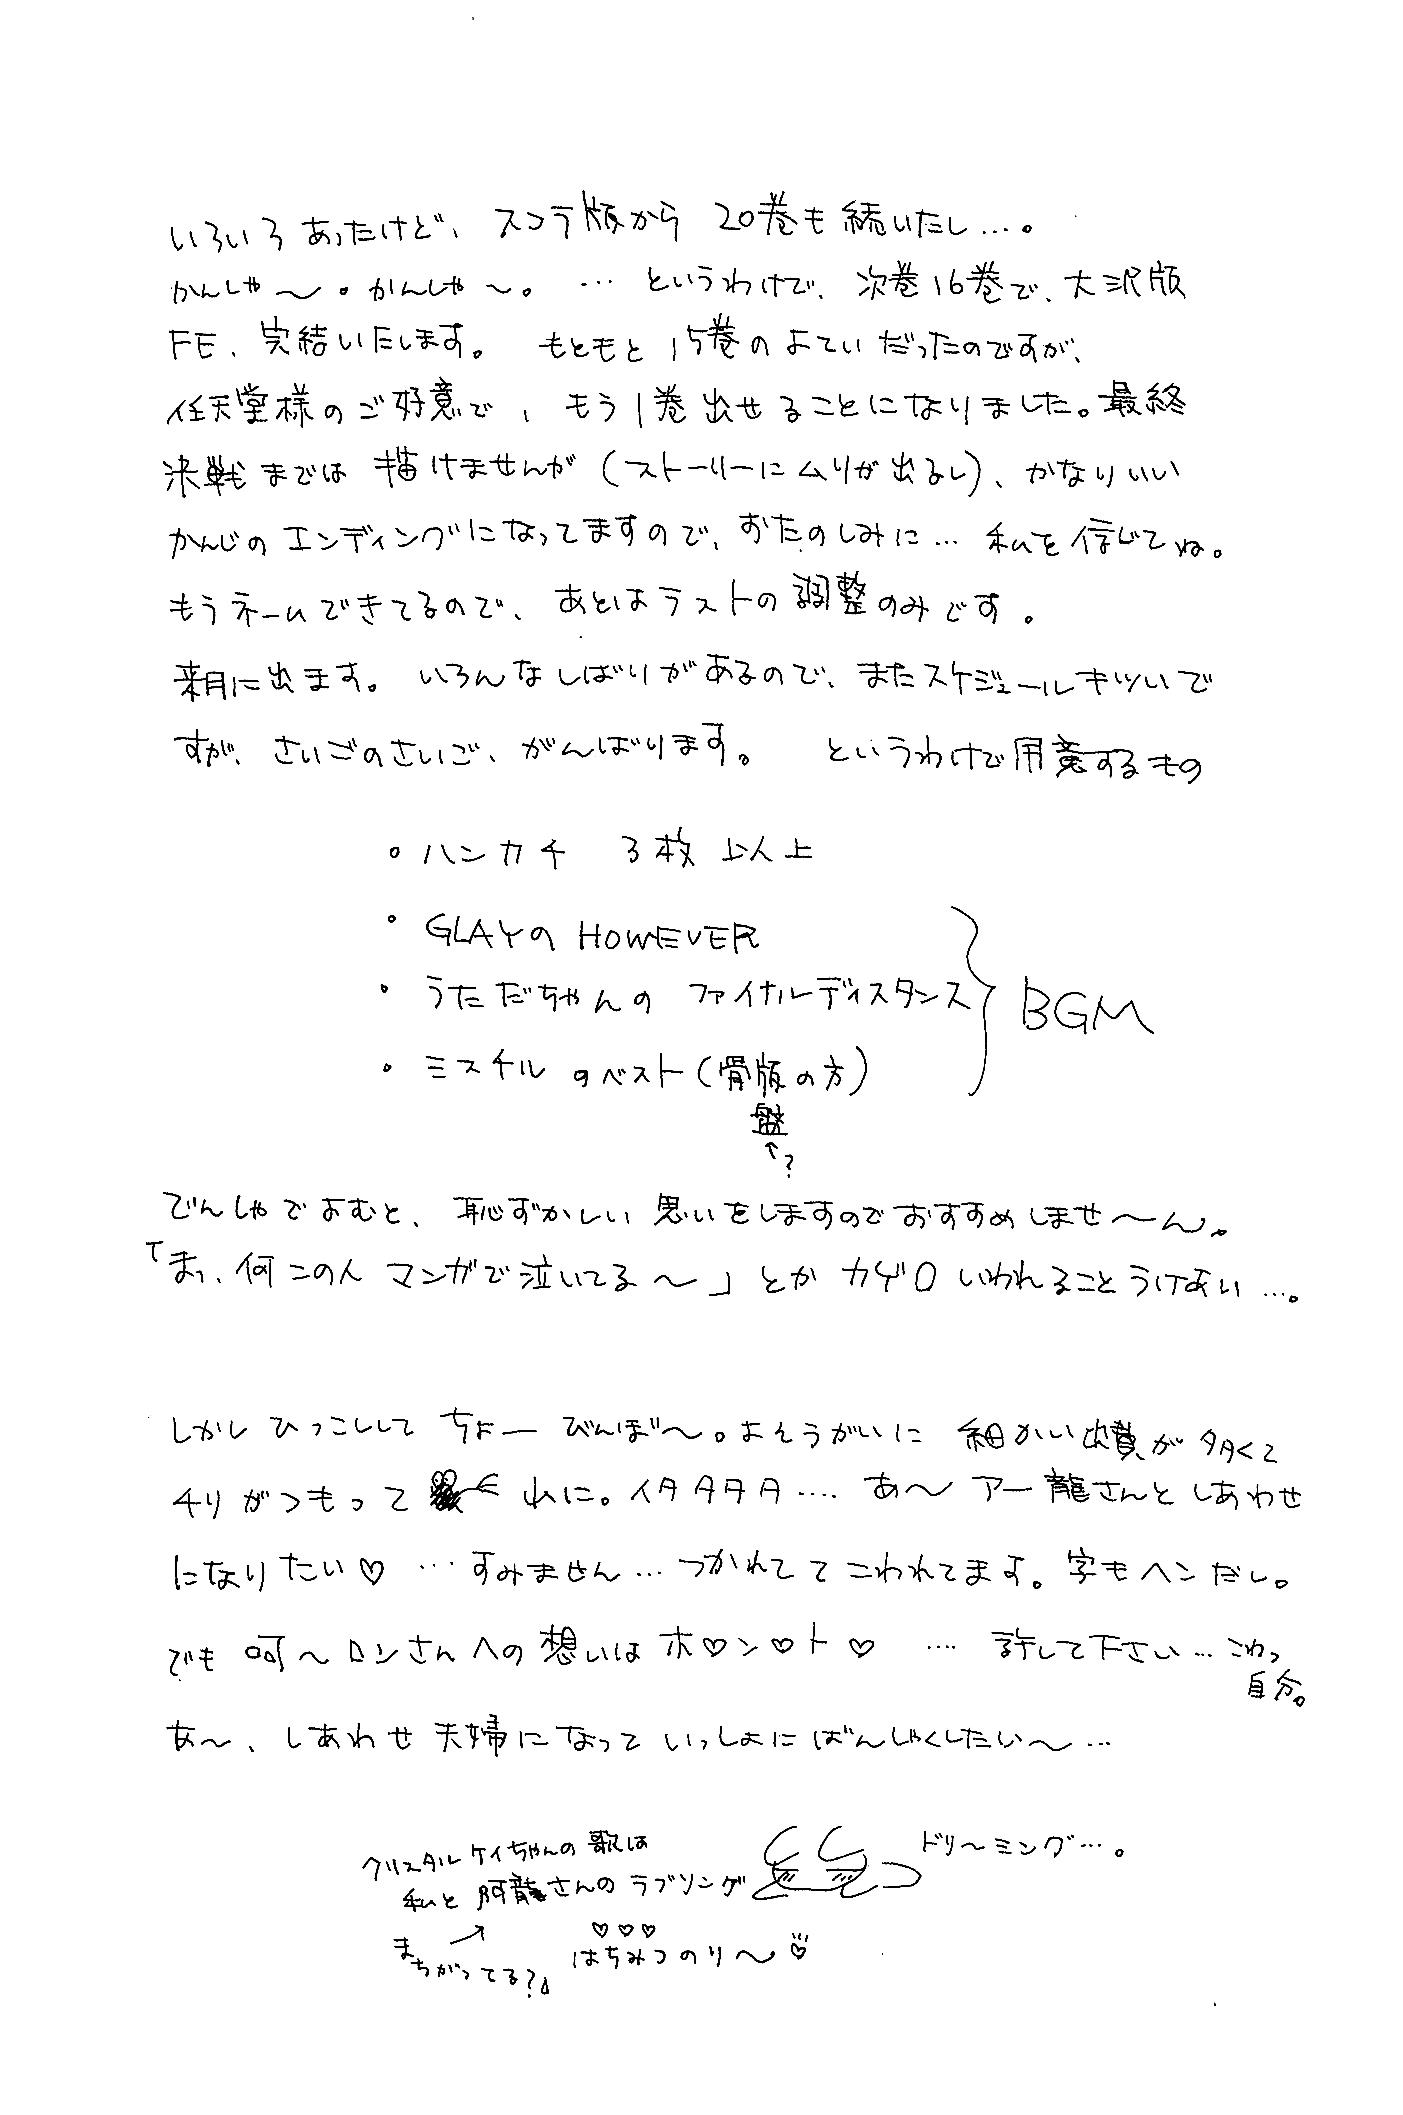 いろいろあったけど、スコラ版から20巻も続いたし…。
かんしゃ〜。かんしゃ〜。…というわけで、次巻16巻で、大沢版
FE、完結いたします。もともと15巻のよていだったのですが、
任天堂様のご好意で、もう1巻出せることになりました。最終
決戦までは描けませんが(ストーリーにムリが出るし)、かなりいい
かんじのエンディングになってますので、おたのしみに…私を信じてね。
もうネームできてるので、あとはラストの調整のみです。
来月に出ます。いろんなしばりがあるので、またスケジュールキツいで
すが、さいごのさいご、がんばります。というわけで用意するもの
・ハンカチ 3枚以上
・GLAYのHOWEVER
・うただちゃんのファイナルディスタンス
BGM
・ミスチルのベスト(骨版の方)
盤
↑?
でんしゃでよむと、恥ずかしい思いをしますのでおすすめしませ〜ん。
「まっ、何この人マンガで泣いてる〜」とかカゲロいわれることうけあい…。
しかしひっこしして ちょーびんぼ〜。よそうがいに細かい出費が多くて
チリがつもって れに。イタタタタ…. あ〜アー龍さんとしあわせ
になりたい♡ …すみません…つかれててこわれてます。字もヘンだし。
でも呵〜ロンさんへの想いはホ♡ン♡ト♡ …. 許して下さい…こわっ
自分。
あ〜、しあわせ夫婦になっていっしょにばんしゃくしたい〜…
ドリ〜ミング…。
クリスタルケイちゃんの歌は
私と阿龍さんのラブソング
♡♡♡
まちがってる?
はちみつのり〜♡